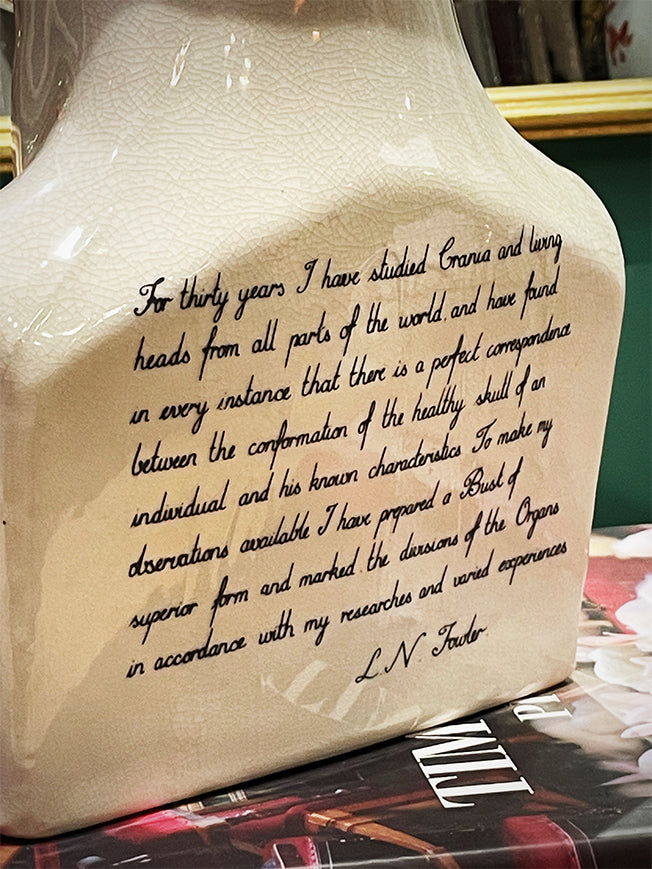 For thirty years I have studied Crania and living
heads from all parts of the world, and have found
in every instance that there is a perfect correspondence
between the conformation of the healthy skull of an
individual and his known characteristics To make my
observations available I have prepared a Bust of
superior form and marked the divisions of the Organs
in accordance with my researches and varied experiences
L.N. Fowler
TIM
P